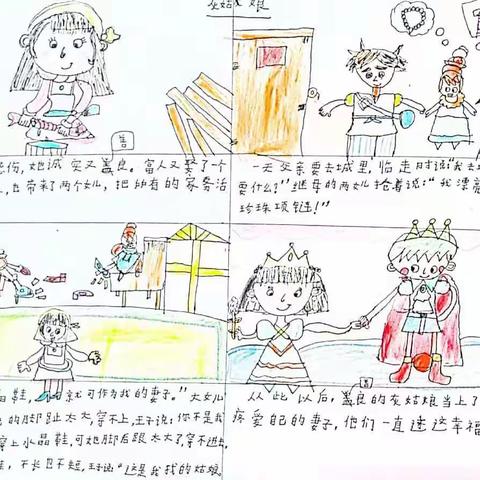 灰姑娘
悲伤，她诚实又善良。富人又娶了一个
也带来了两个女儿，把所有的家务活
一天父亲要去城里，临走时说"我去城
要什么？"继母的两女儿抢着说："我漂亮
珍珠项链！"
鞋，就可作为我的妻子。"大女儿
的脚趾太大，穿不上，王子说，你不是我
穿上水晶鞋，可她脚后跟太大了穿不进去
鞋，不长也不短，王子说"这是我找的姑娘
从此以后，善良的灰姑娘当上了
疼爱自己的妻子，他们一直速这幸福